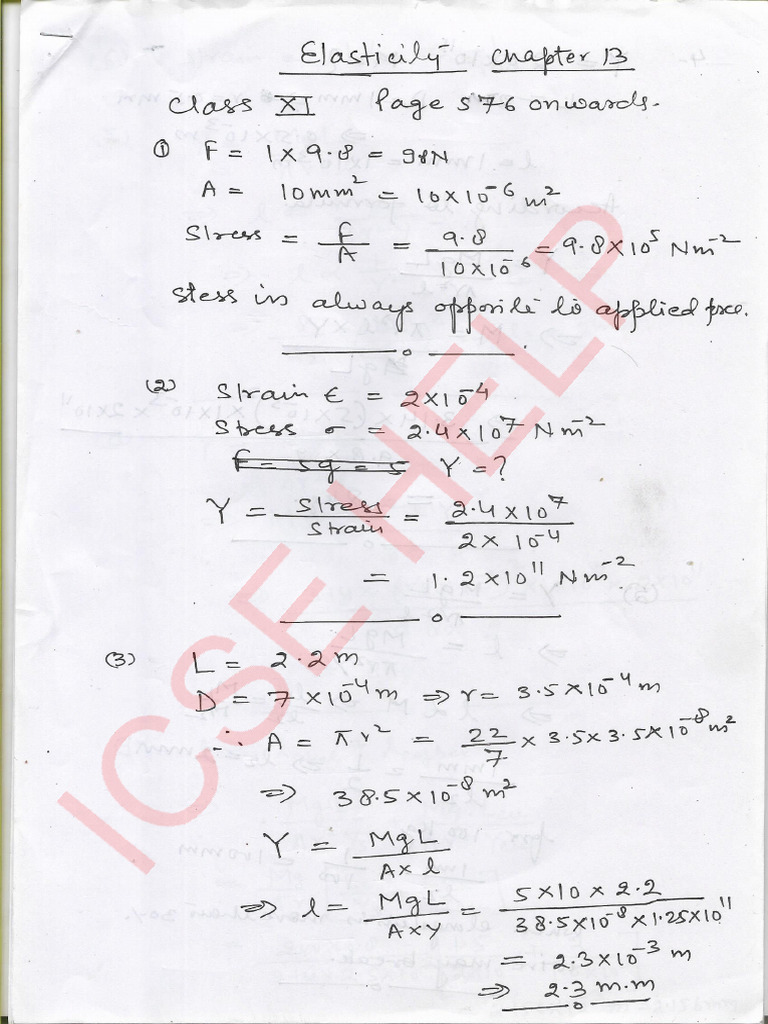 Elasticity Chapter 13
Class XI Page 576 onwards.
① F = 1 × 9.8 = 98N
A = 10mm² = 10×10⁻⁶ m²
Stress = F/A = 9.8/10×10⁻⁶ = 9.8×10⁵ Nm⁻²
Stess in always opposite to applied force.
(2) Strain ε = 2×10⁻⁴
Stress σ = 2.4×10⁷ Nm⁻²
F = 5g = 5 Y = ?
Y = Stress/Strain = 2.4×10⁷/2×10⁻⁴
= 1.2×10¹¹ Nm⁻²
(3) L = 2.2m
D = 7×10⁻⁴m ⇒ r = 3.5×10⁻⁴m
∴ A = πr² = 22/7 × 3.5×3.5×10⁻⁸m²
⇒ 38.5×10⁻⁸m²
Y = MgL/A×l
⇒ l = MgL/A×Y = 5×10×2.2/38.5×10⁻⁸×1.25×10¹¹
= 2.3×10⁻³ m
⇒ 2.3 m.m
ICSE HELP